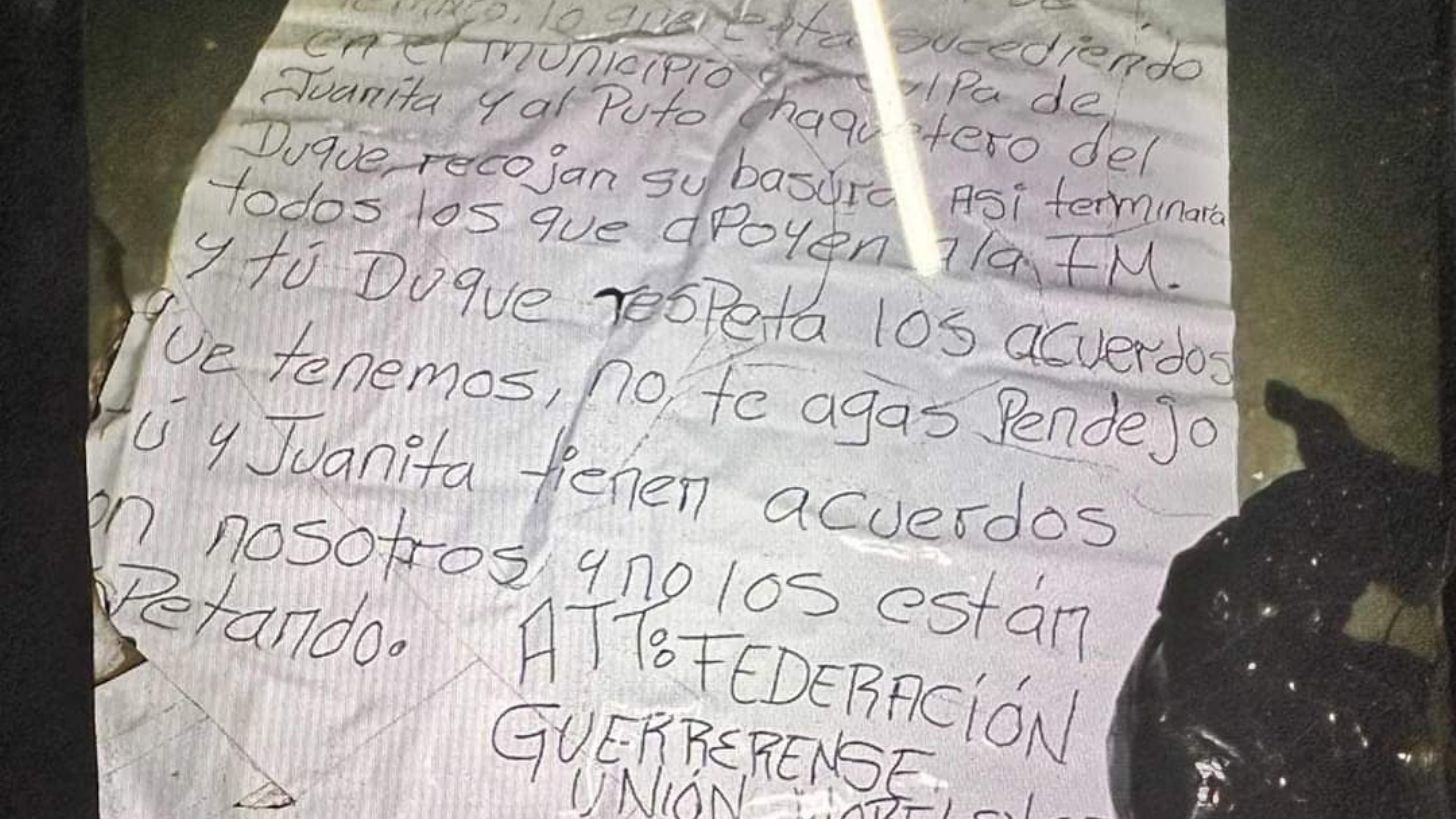 lo que está sucediendo
en el municipio culPa de
Juanita y al Puto chaquetero del
Duque, recojan su basura Así terminara
todos los que aPoyen a la FM.
y tú Duque resPeta los acuerdos
ue tenemos, no te agas Pendejo
Tú y Juanita tienen acuerdos
on nosotros y no los están
sPetando. ATT: FEDERACÍÓN
GUERRERENSE
UNIÓN